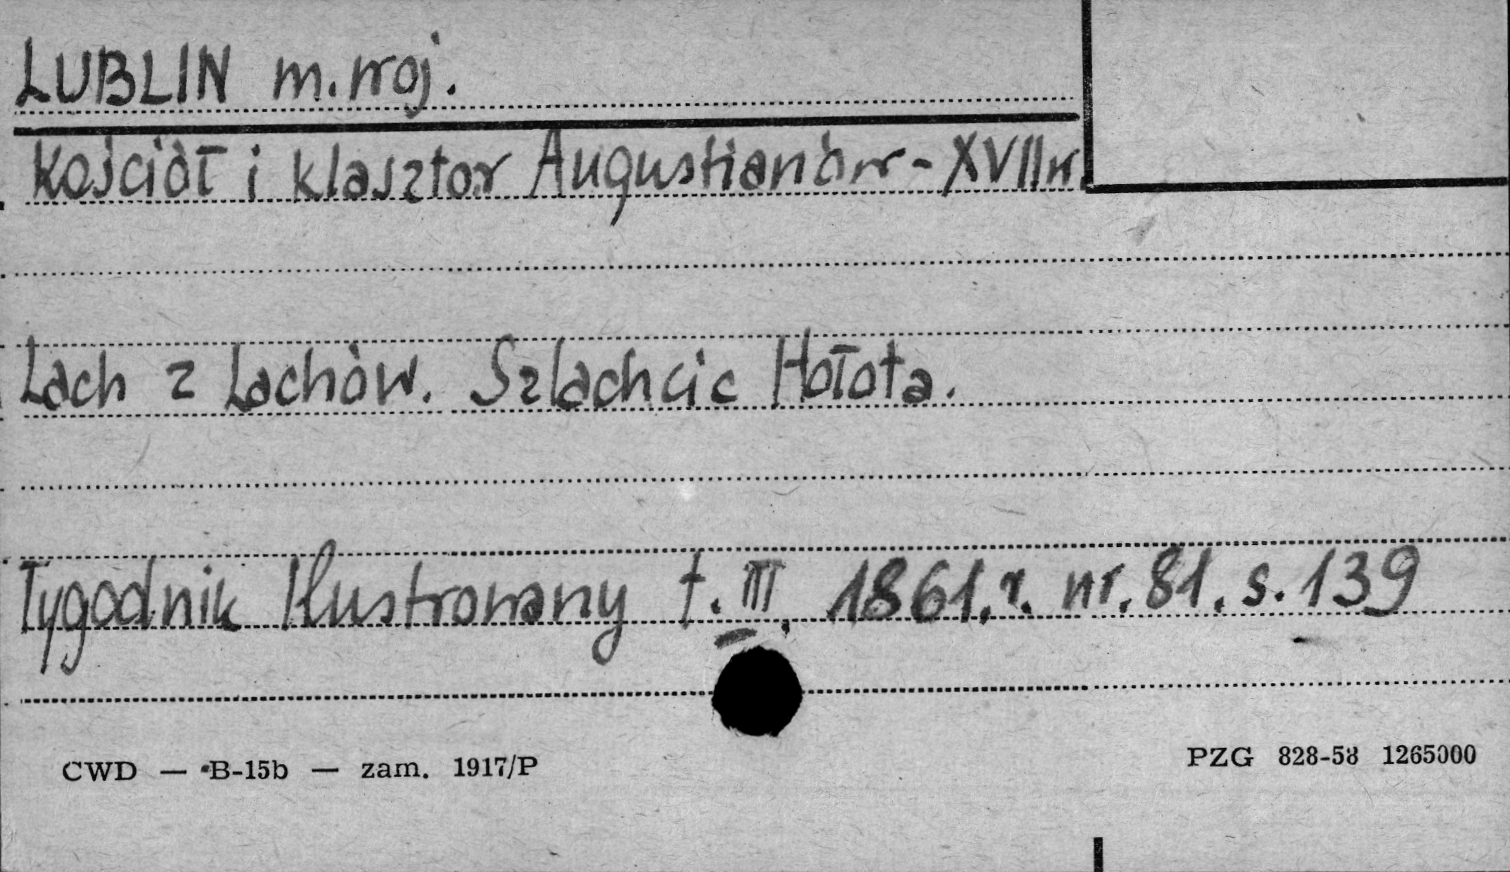 LUBLIN m.woj.
Kościół i klasztor Augustianów - XVII w.
Lach z Lachów. Szlachcic Hołota.
Tygodnik Ilustrowany t. III, 1861. r. nr. 81. s. 139
CWD — B-15b — zam. 1917/P
PZG 828-58 1265000